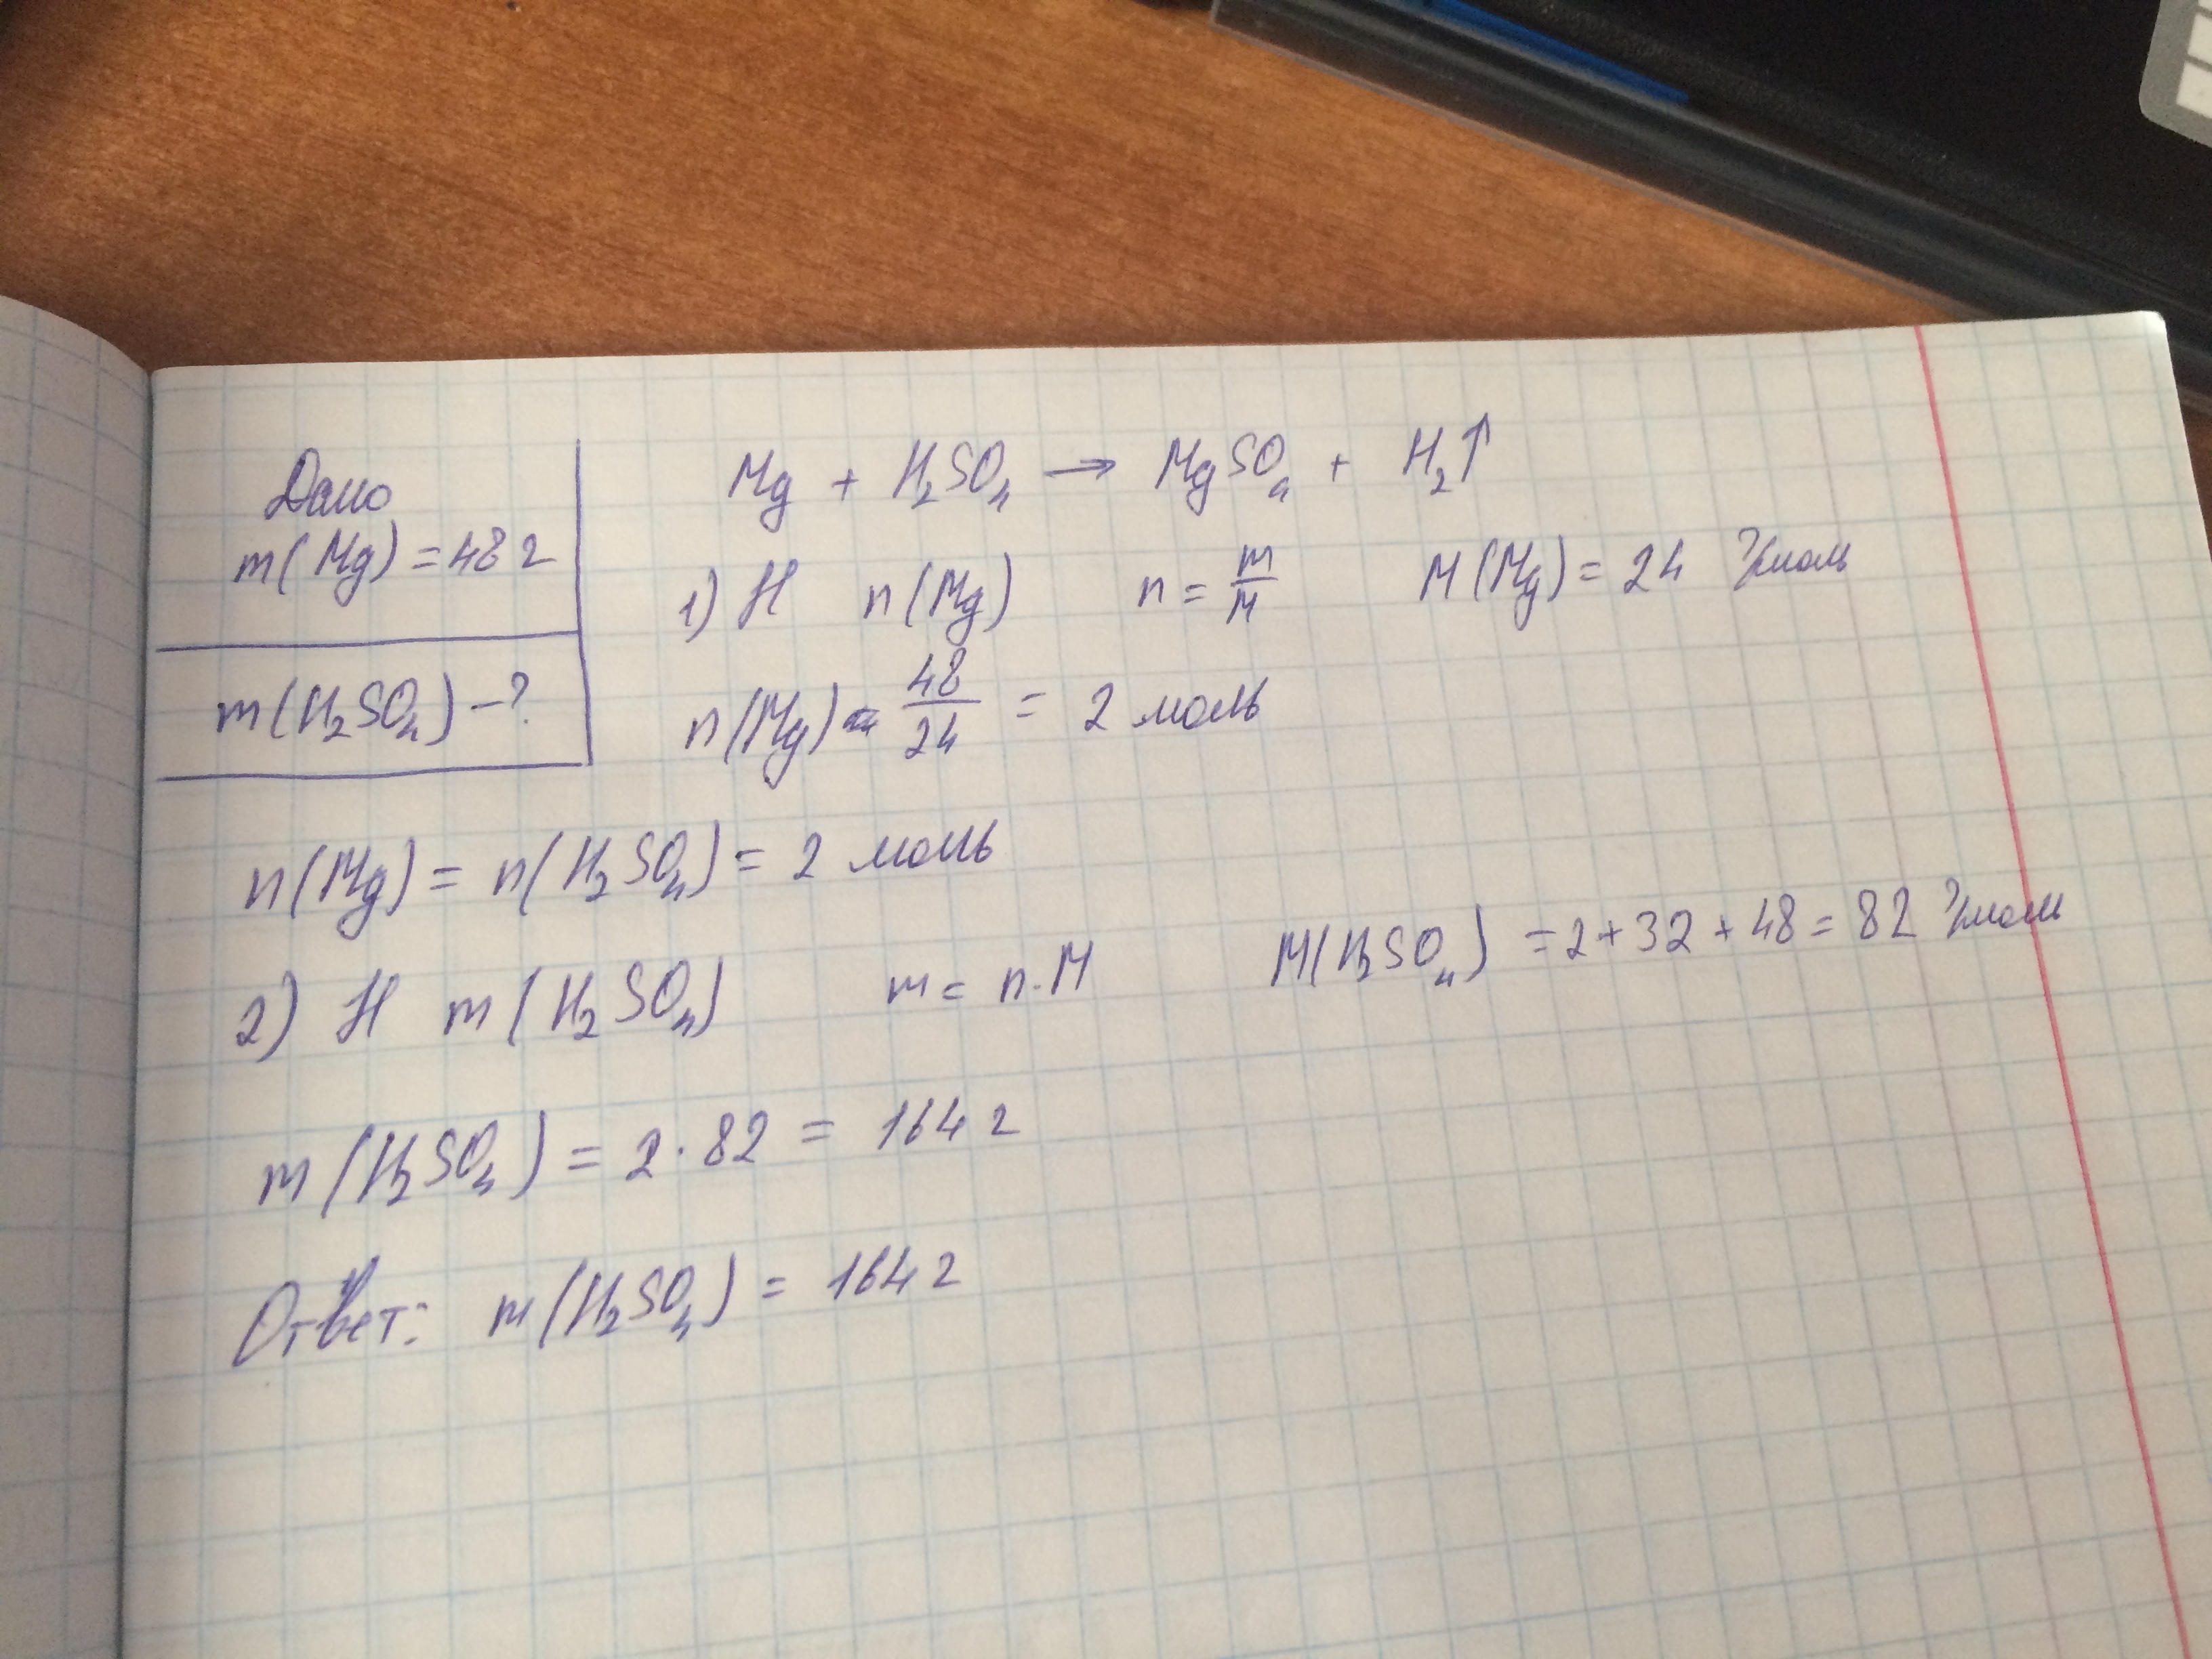 Дано
m(Mg) = 48 г
m(H₂SO₄) - ?
Mg + H₂SO₄ → MgSO₄ + H₂↑
1) Н n(Mg) n = m/M M(Mg) = 24 г/моль
n(Mg) = 48/24 = 2 моль
n(Mg) = n(H₂SO₄) = 2 моль
2) Н m(H₂SO₄) m = n·M M(H₂SO₄) = 2 + 32 + 48 = 82 г/моль
m(H₂SO₄) = 2·82 = 164 г
Ответ: m(H₂SO₄) = 164 г